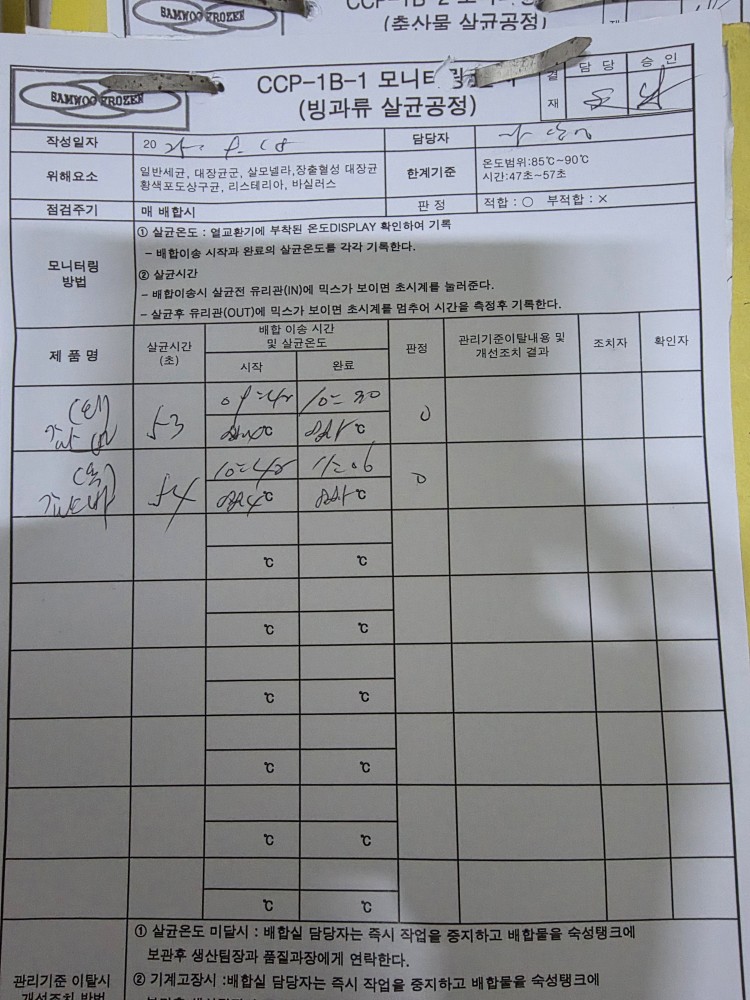 CCP-1B-2
(축산물 살균공정)
SAMWOO FROZEN
SAMWOO FROZEN
CCP-1B-1 모니터링
(빙과류 살균공정)
결재 담당 승인
작성일자 20 담당자
위해요소 일반세균, 대장균군, 살모넬라,장출혈성 대장균
황색포도상구균, 리스테리아, 바실러스
한계기준 온도범위:85℃~90℃
시간:47초~57초
점검주기 매 배합시 판 정 적합 : ○ 부적합 : ×
모니터링
방법
① 살균온도 : 열교환기에 부착된 온도DISPLAY 확인하여 기록
- 배합이송 시작과 완료의 살균온도를 각각 기록한다.
② 살균시간
- 배합이송시 살균전 유리관(IN)에 믹스가 보이면 초시계를 눌러준다.
- 살균후 유리관(OUT)에 믹스가 보이면 초시계를 멈추어 시간을 측정후 기록한다.
제 품 명 살균시간
(초)
배합 이송 시간
및 살균온도
시작 완료
판정 관리기준이탈내용 및
개선조치 결과
조치자 확인자
53 10:30 ○
℃ ℃
54 10:42 11:06 ○
℃ ℃
℃ ℃
℃ ℃
℃ ℃
℃ ℃
℃ ℃
℃ ℃
관리기준 이탈시
개선조치 방법
① 살균온도 미달시 : 배합실 담당자는 즉시 작업을 중지하고 배합물을 숙성탱크에
보관후 생산팀장과 품질과장에게 연락한다.
② 기계고장시 :배합실 담당자는 즉시 작업을 중지하고 배합물을 숙성탱크에